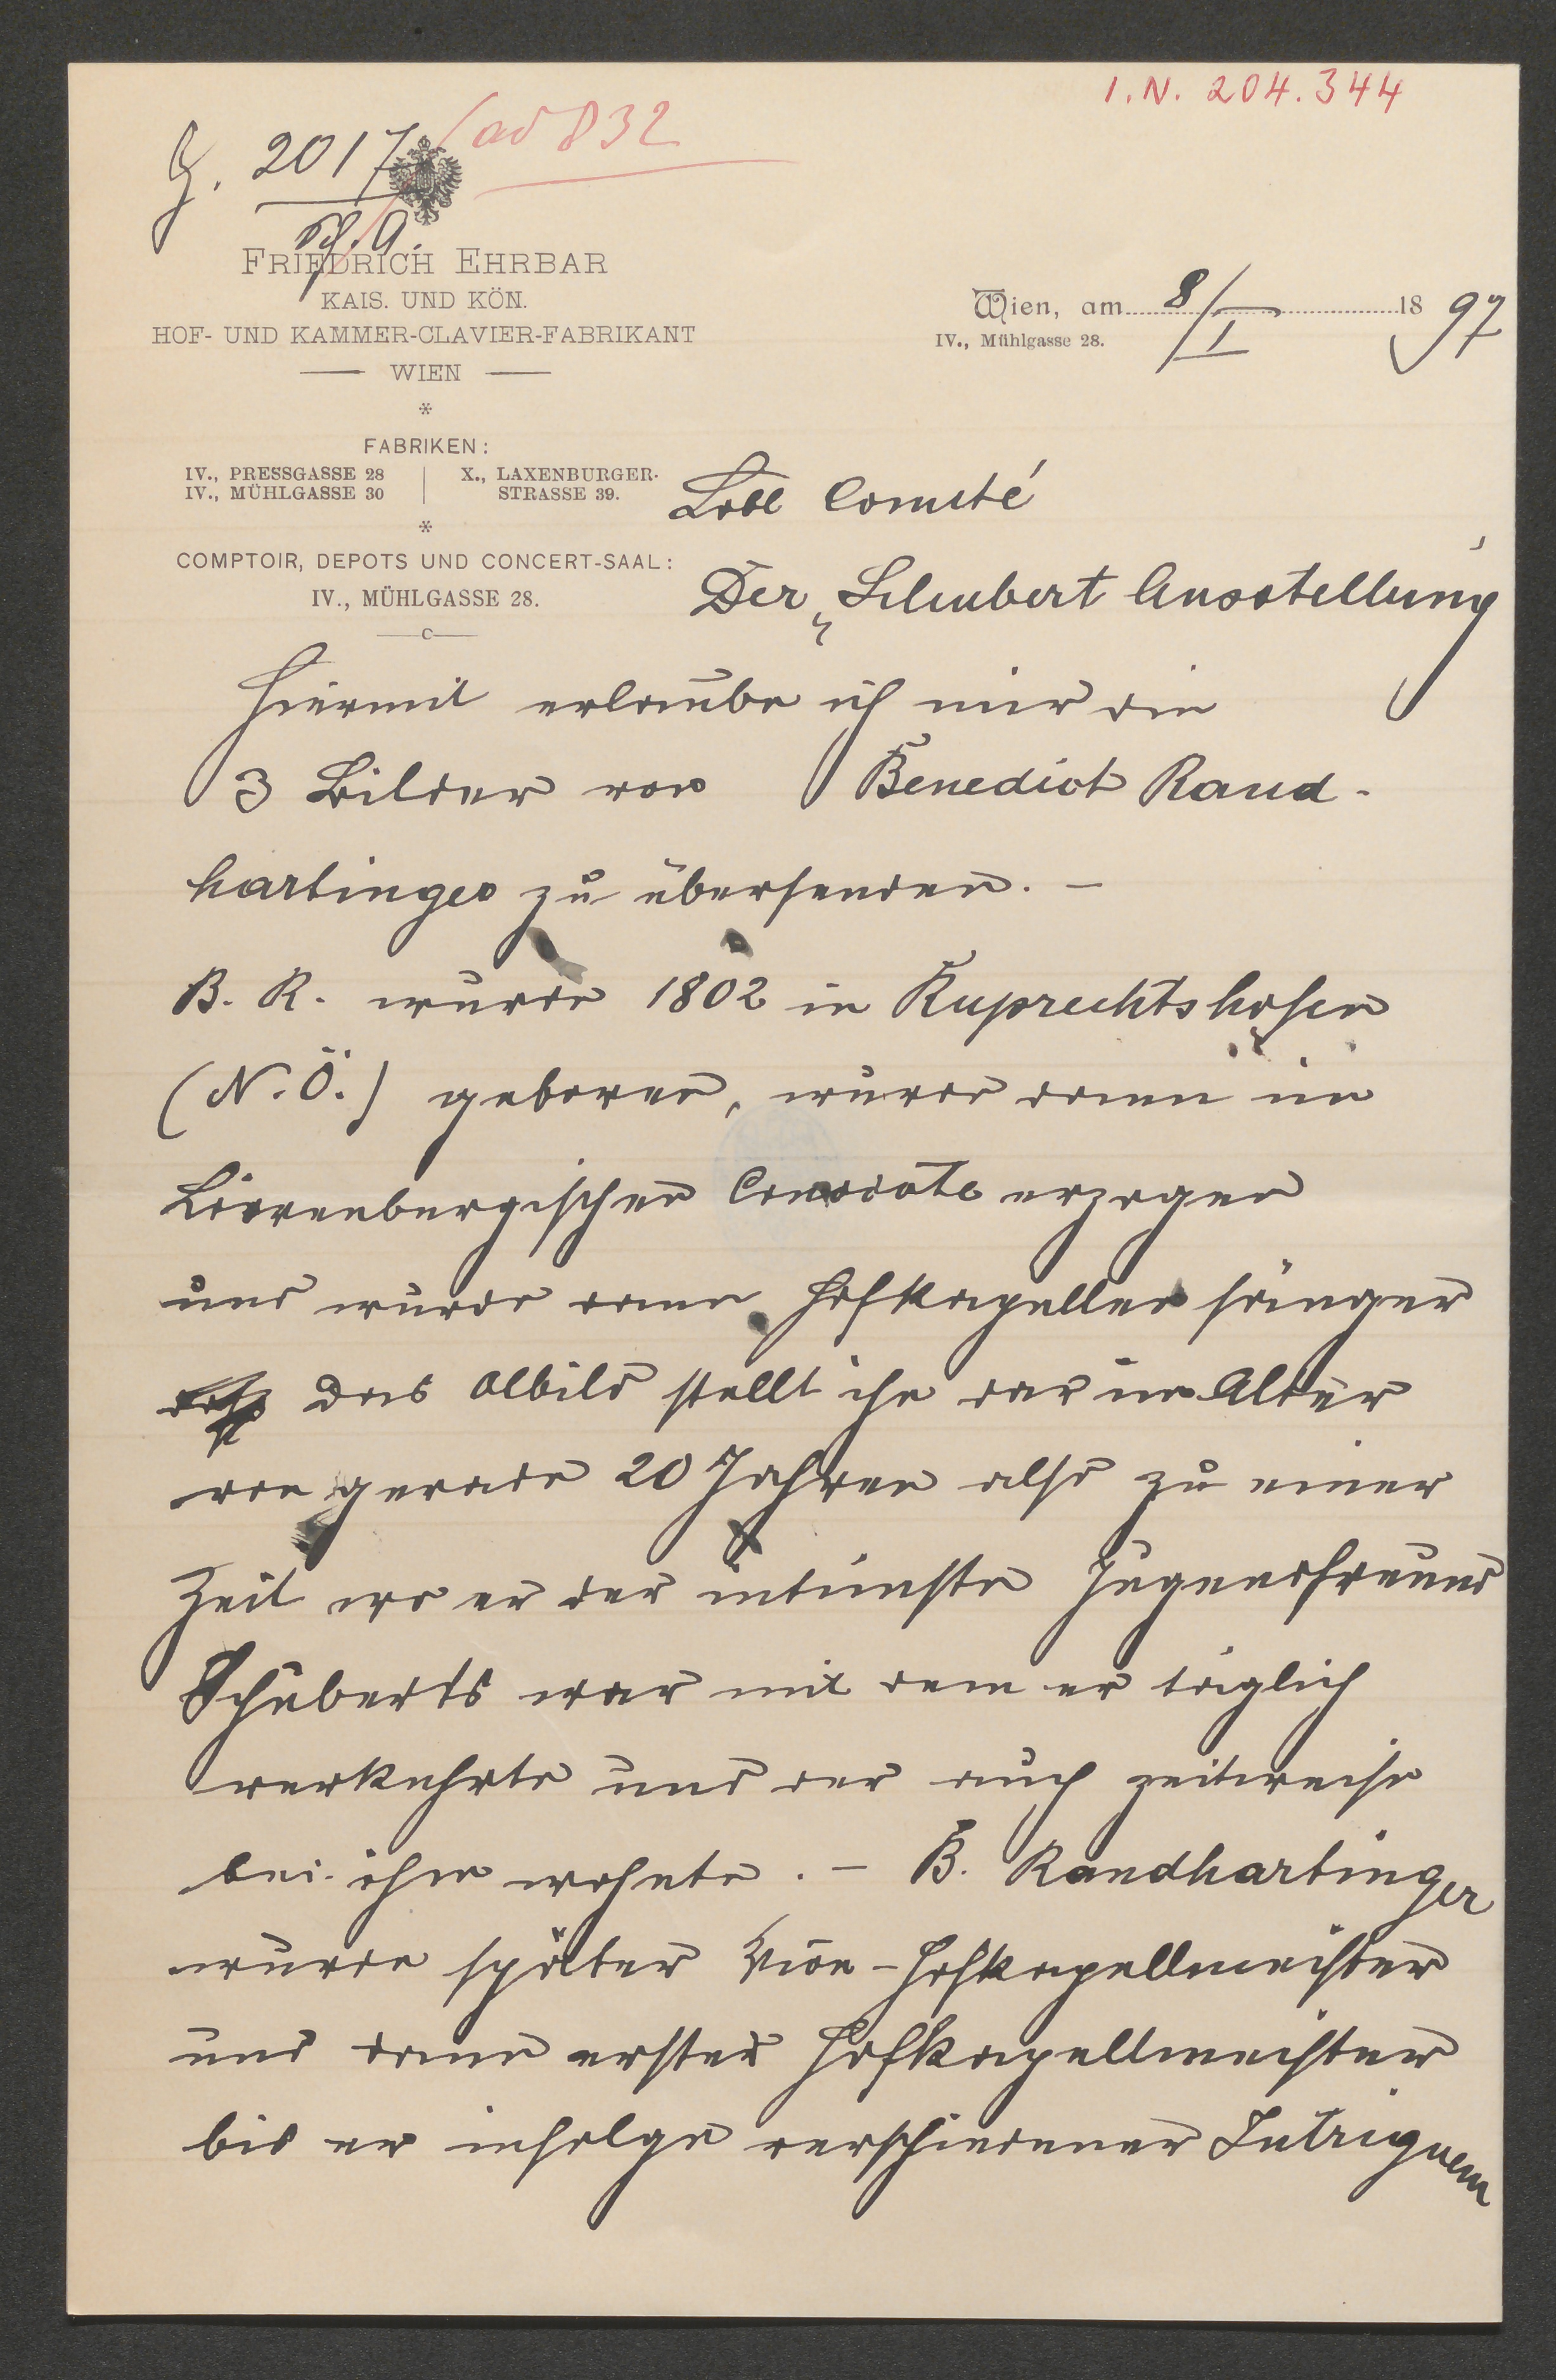 I. N. 204.344
Z. 2017 / ad 832
Sch. A.
FRIEDRICH EHRBAR
KAIS. UND KÖN.
HOF- UND KAMMER-CLAVIER-FABRIKANT
WIEN
*
FABRIKEN:
IV., PRESSGASSE 28
IV., MÜHLGASSE 30
X., LAXENBURGER-
STRASSE 39.
*
COMPTOIR, DEPOTS UND CONCERT-SAAL:
IV., MÜHLGASSE 28.
Wien, am 8/I 1897
IV., Mühlgasse 28.
Löbl Comité
Der „Schubert Ausstellung
Hiermit erlaube ich mir die
3 Bilder von Benedict Rand-
hartinger zu übersenden. –
B. R. wurde 1802 in Ruprechtshofen
(N. Ö.) geboren, wurde dann im
Convicte erzogen
und wurde dann Hofkapellen sänger
Das Oelbild stellt ihn dar im Alter
von gerade 20 Jahren also zu einer
Zeit wo er der intimste Jugendfreund
Schuberts war mit dem er täglich
verkehrte und der auch zeitweise
bei ihm wohnte. – B. Randhartinger
wurde später Vice-Hofkapellmeister
und dann erster Hofkapellmeister
bis er infolge verschiedener Intriguen